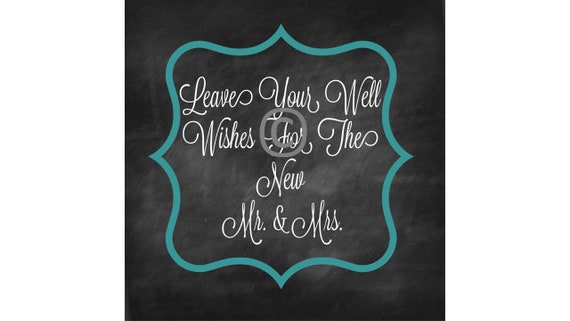 Leave Your Well
Wishes For The
New
Mr. & Mrs.
©